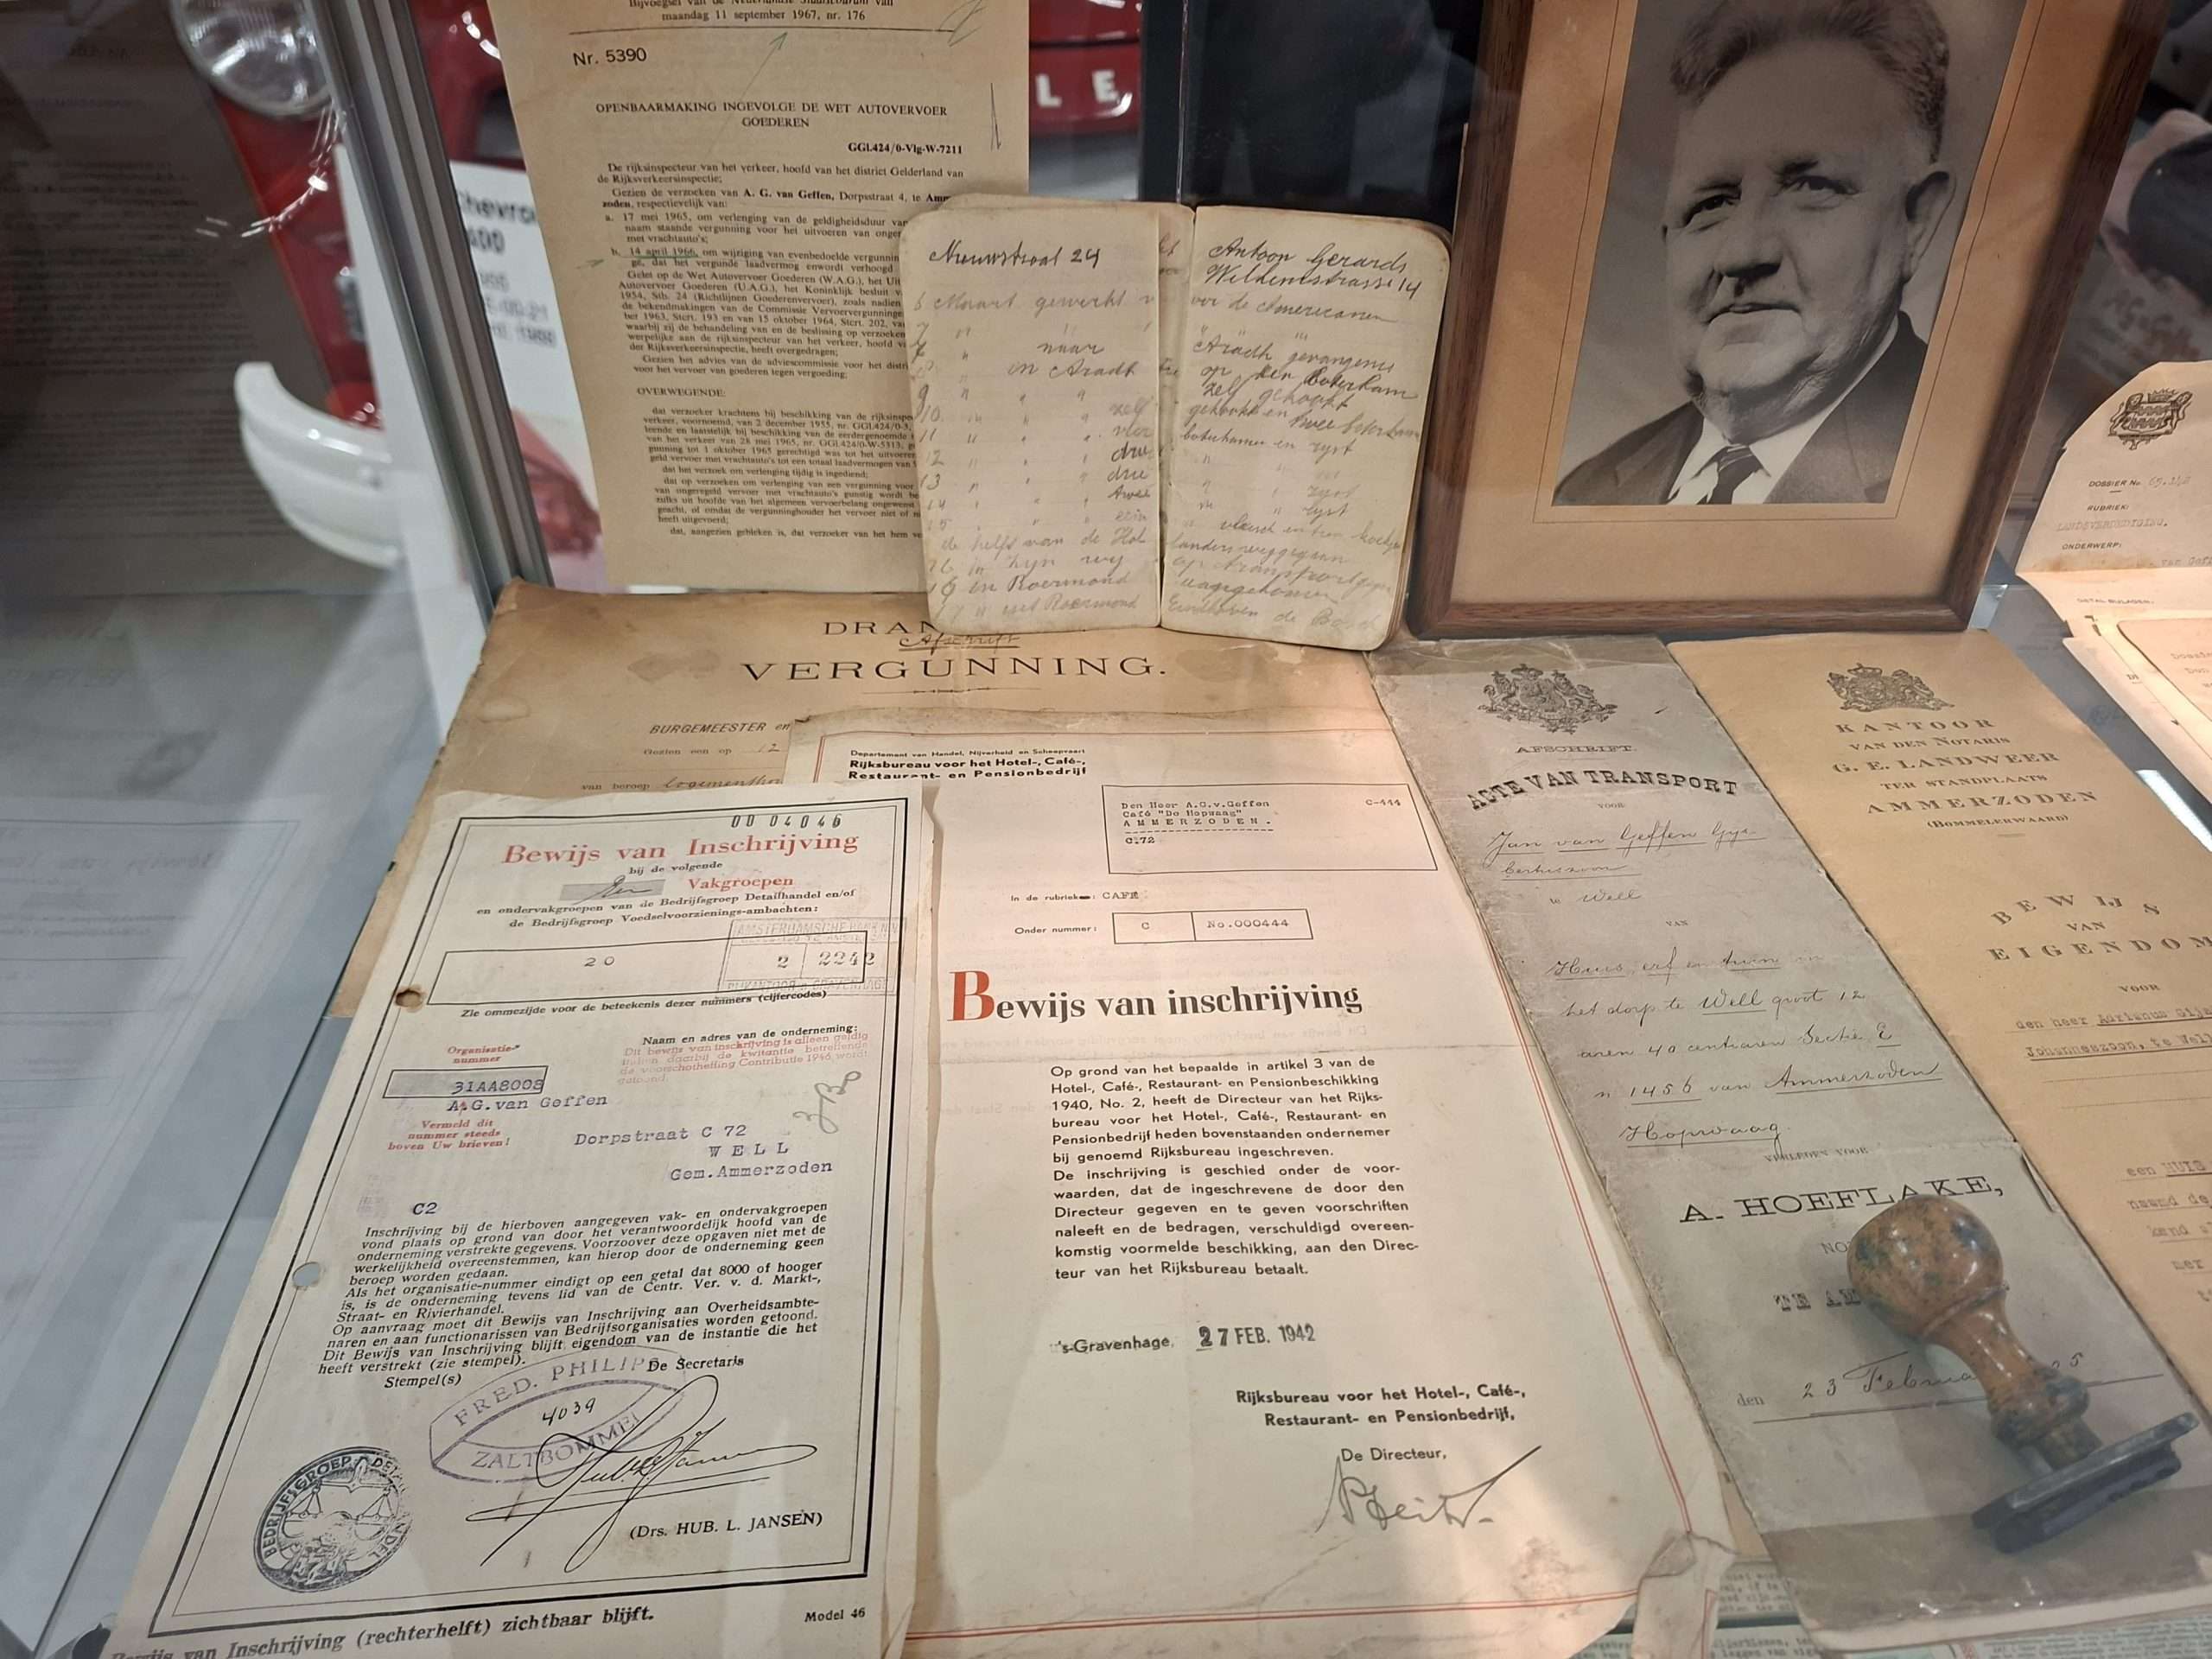 maandag 11 september 1967, nr. 176
Nr. 5390
OPENBAARMAKING INGEVOLGE DE WET AUTOVERVOER
GOEDEREN
GGL424/0-Vlg-W-7211
De rijksinspecteur van het verkeer, hoofd van het district Gelderland van
de Rijksverkeersinspectie;
Gezien de verzoeken van A. G. van Geffen, Dorpsstraat 4, te Amm
zoden, respectievelijk van:
a. 17 mei 1965, om verlenging van de geldigheidsduur van
naam staande vergunning voor het uitvoeren van onger
met vrachtauto's;
b. 14 april 1966, om wijziging van evenbedoelde vergunnin
ge, dat het vergunde laadvermog enwordt verhoogd
Gelet op de Wet Autovervoer Goederen (W.A.G.), het Uit
Autovervoer Goederen (U.A.G.), het Koninklijk besluit v
1954, Stb. 24 (Richtlijnen Goederenvervoer), zoals nadien
de bekendmakingen van de Commissie Vervoervergunninge
ber 1963, Stcrt. 193 en van 15 oktober 1964, Stcrt. 202, va
waarbij zij de behandeling van en de beslissing op verzoeken
werpelijke aan de rijksinspecteur van het verkeer, hoofd v
der Rijksverkeersinspectie, heeft overgedragen;
Gezien het advies van de adviescommissie voor het distri
voor het vervoer van goederen tegen vergoeding;
OVERWEGENDE:
dat verzoeker krachtens bij beschikking van de rijksinspe
verkeer, voornoemd, van 2 december 1955, nr. GGL424/0-3,
leende en laatstelijk bij beschikking van de eerdergenoemde
van het verkeer van 28 mei 1965, nr. GGL424/0-W-5313, g
gunning tot 1 oktober 1965 gerechtigd was tot het uitvoere
geld vervoer met vrachtauto's tot een totaal laadvermogen van
dat het verzoek om verlenging tijdig is ingediend;
dat op verzoeken om verlenging van een vergunning voor
van ongeregeld vervoer met vrachtauto's gunstig wordt be
zulks uit hoofde van het algemeen vervoerbelang ongewenst
geacht, of omdat de vergunninghouder het vervoer niet of n
heeft uitgevoerd;
dat, aangezien gebleken is, dat verzoeker van het hem ve
LE
Nieuwstraat 24
6 Maart gewerkt
naar
in Aradh
9
10 zelf
11
12 drie
13 drie
14 twee
15 een
de helft van de Hol
16 in
16 in Roermond
Roermond
Antoon Gerards
Wilhemstrasse 14
voor de Americanen
Aradh gevangenis
op den Boterham
zelf gekookt
gekookt en twee boterham
boterhammen en ryst
ryst
ryst
vleesch en
landers weggegaan
op transport
aangekomen
Eindhoven de Bosch
DRAN
Afschrift
VERGUNNING.
BURGEMEESTER en
Gezien een op 12
van beroep logementhou
00 04046
Bewijs van Inschrijving
bij de volgende
Vakgroepen
en ondervakgroepen van de Bedrijfsgroep Detailhandel en/of
de Bedrijfsgroep Voedselvoorzienings-ambachten:
20
2 2242
Zie ommezijde voor de beteekenis dezer nummers (cijfercodes)
Naam en adres van de onderneming:
Dit bewijs van inschrijving is alleen geldig
Organisatie-
nummer
31AA8008
A.G.van Geffen
Vermeld dit
nummer steeds
boven Uw brieven!
Dorpstraat C 72
WELL
Gem.Ammerzoden
C2
Inschrijving bij de hierboven aangegeven vak- en ondervakgroepen
vond plaats op grond van door het verantwoordelijk hoofd van de
onderneming verstrekte gegevens. Voorzoover deze opgaven niet met de
werkelijkheid overeenstemmen, kan hierop door de onderneming geen
beroep worden gedaan.
Als het organisatie-nummer eindigt op een getal dat 8000 of hooger
is, is de onderneming tevens lid van de Centr. Ver. v. d. Markt-,
Straat- en Rivierhandel.
Op aanvraag moet dit Bewijs van Inschrijving aan Overheidsambte-
naren en aan functionarissen van Bedrijfsorganisaties worden getoond.
Dit Bewijs van Inschrijving blijft eigendom van de instantie die het
heeft verstrekt (zie stempel).
Stempel(s)
De Secretaris
FRED. PHILIPS
4039
ZALTBOMMEL
BEDRIJFSGROEP DETAILHANDEL
(Drs. HUB. L. JANSEN)
Bewijs van Inschrijving (rechterhelft) zichtbaar blijft.
Model 46
Departement van Handel, Nijverheid en Scheepvaart
Rijksbureau voor het Hotel-, Café-,
Restaurant- en Pensionbedrijf
Den Heer A.G.v.Geffen
Café "De Hopwaag"
AMMERZODEN.
C.72
C-444
In de rubriek: CAFE
Onder nummer:
C
No.000444
Bewijs van inschrijving
Op grond van het bepaalde in artikel 3 van de
Hotel-, Café-, Restaurant- en Pensionbeschikking
1940, No. 2, heeft de Directeur van het Rijks-
bureau voor het Hotel-, Café-, Restaurant- en
Pensionbedrijf heden bovenstaanden ondernemer
bij genoemd Rijksbureau ingeschreven.
De inschrijving is geschied onder de voor-
waarden, dat de ingeschrevene de door den
Directeur gegeven en te geven voorschriften
naleeft en de bedragen, verschuldigd overeen-
komstig voormelde beschikking, aan den Direc-
teur van het Rijksbureau betaalt.
's-Gravenhage, 27 FEB. 1942
Rijksbureau voor het Hotel-, Café-,
Restaurant- en Pensionbedrijf,
De Directeur,
AFSCHRIFT.
ACTE VAN TRANSPORT
VOOR
Jan van Geffen Gys-
bertuszoon
te Well
VAN
Huis, erf en tuin in
het dorp te Well groot 12
aren 40 centiaren Sectie E
n 1456 van Ammerzoden
Hopwaag
VERLEDEN VOOR
A. HOEFLAKE,
NO
TE AM
den 23 Februa 25
KANTOOR
VAN DEN NOTARIS
G. E. LANDWEER
TER STANDPLAATS
AMMERZODEN
(BOMMELERWAARD)
BEWIJS
VAN
EIGENDOM
VOOR
den heer Adrianus Gijs
Johanneszoon, te Wel
een HUIS
DOSSIER No.
RUBRIEK:
LANDSVERDEDIGING.
ONDERWERP: